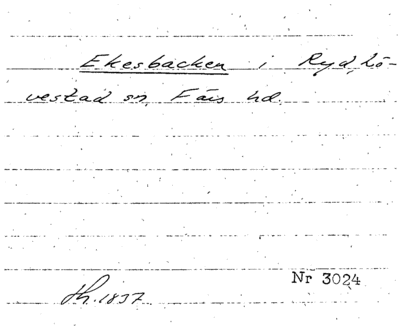 Ekesbacken i Ryd, Lö-
vestad sn, Färs hd.
Nr 3024
fh. 1837